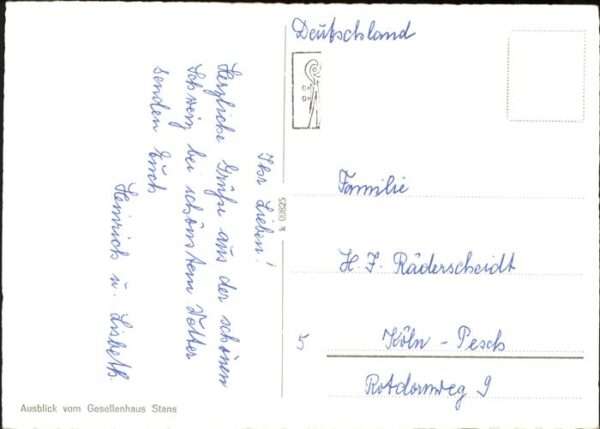 Ihr Lieben!
Herzliche Grüße aus der schönen
Schweiz bei schönstem Wetter
senden Euch
Heinrich u. Lisbeth.
Deutschland
Familie
H. J. Räderscheidt
5 Köln - Pesch
Rotdornweg 9
Ausblick vom Gesellenhaus Stans